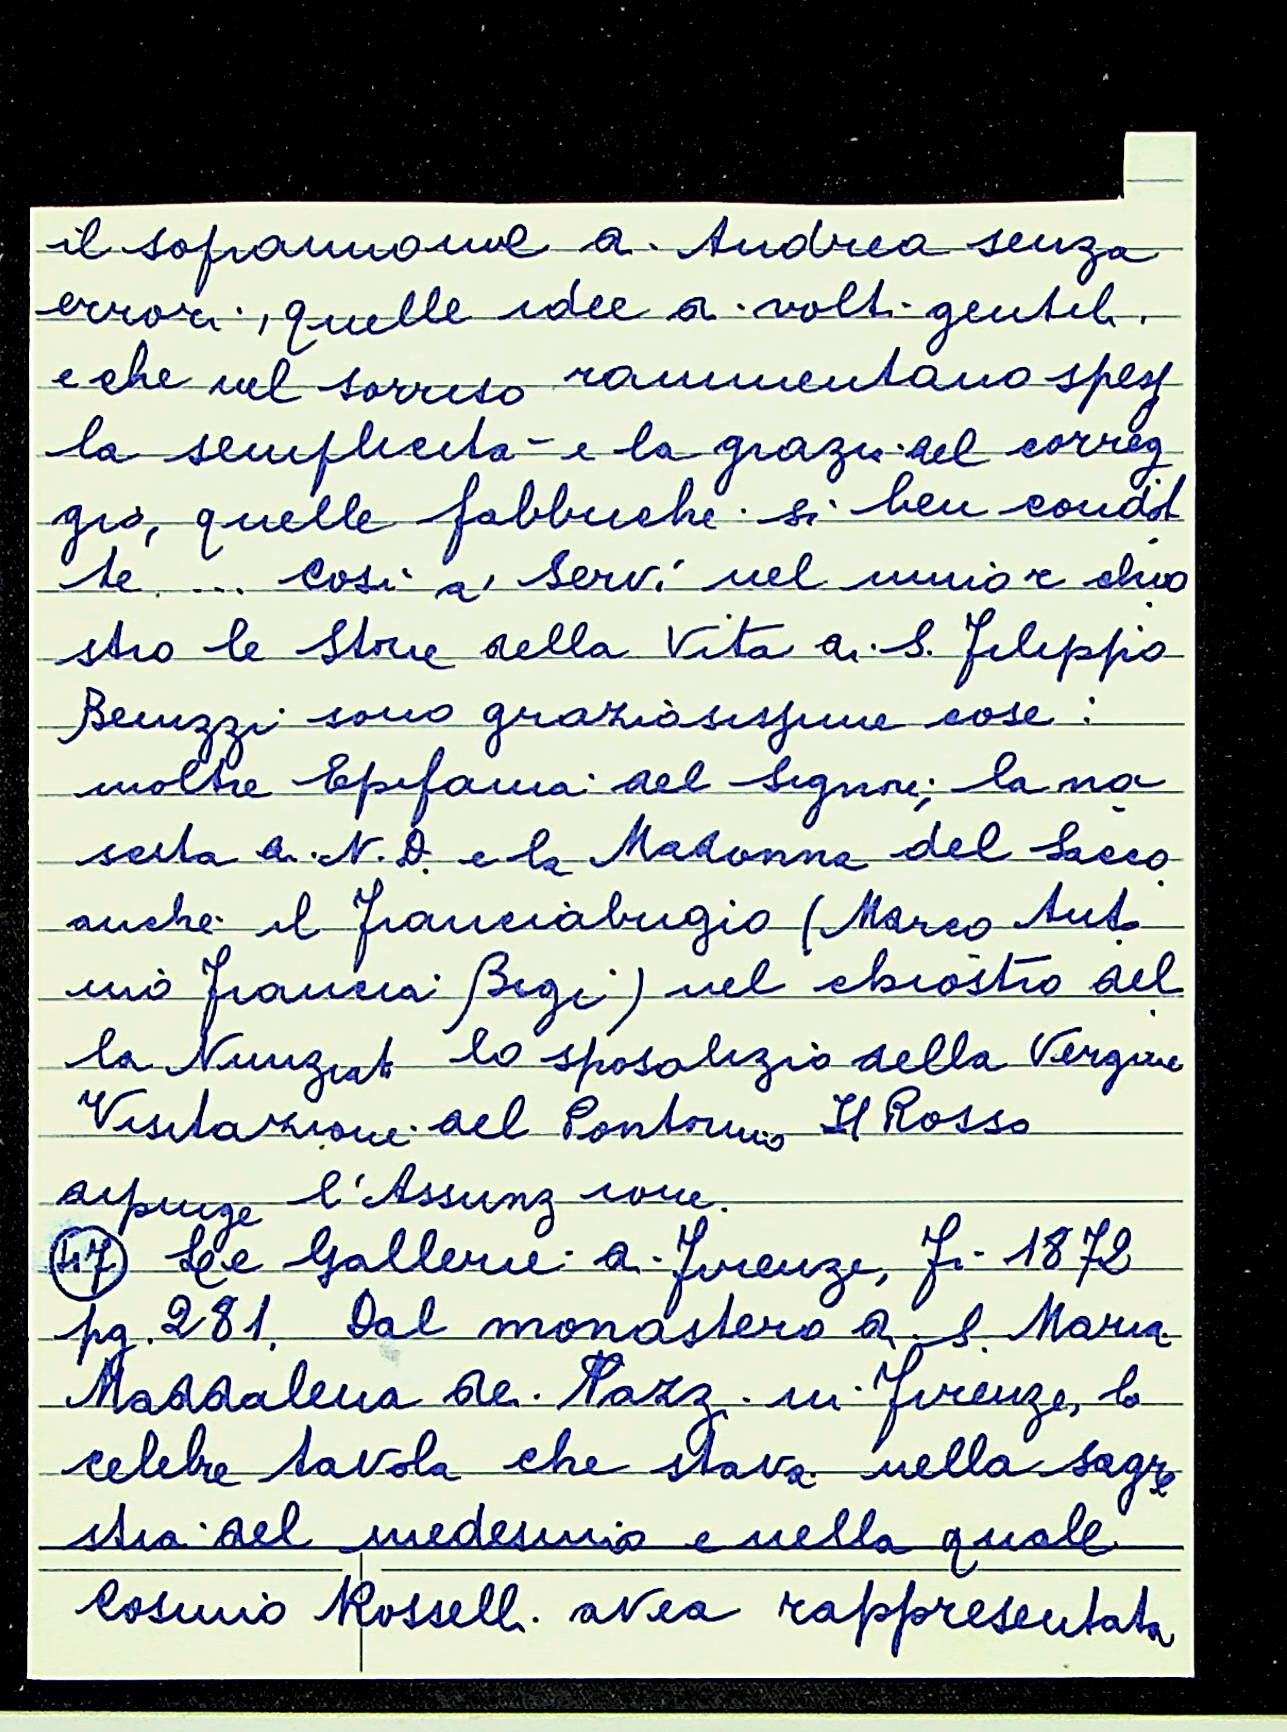 il soprannome di Andrea senza
errori, quelle idee di volti gentili,
e che nel sorriso rammentano spess
la semplicità e la grazia del correg
gio, quelle fabbriche sì ben condot
te ... Così a' Servi nel minor chio
stro le Storie della Vita di S. Filippo
Benizzi sono graziosissime cose:
inoltre Epifania del Signore; la na
scita di N. D. e la Madonna del Sacco
anche il Franciabigio (Marco Anto
nio Francia Bigi) nel chiostro del
la Nunziata lo sposalizio della Vergine
Visitazione del Pontormo Il Rosso
dipinge l'Assunzione.
47 Le Gallerie di Firenze, Fi. 1872
pg. 281. Dal monastero di S. Maria
Maddalena de' Pazzi in Firenze, la
celebre tavola che stava nella sagre
stia del medesimo e nella quale
Cosimo Rosselli avea rappresentata